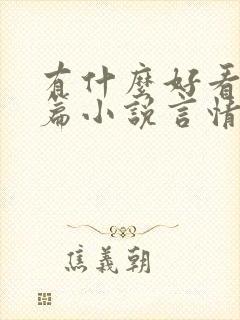 有什麼好看
篇小說言情
焦義朝